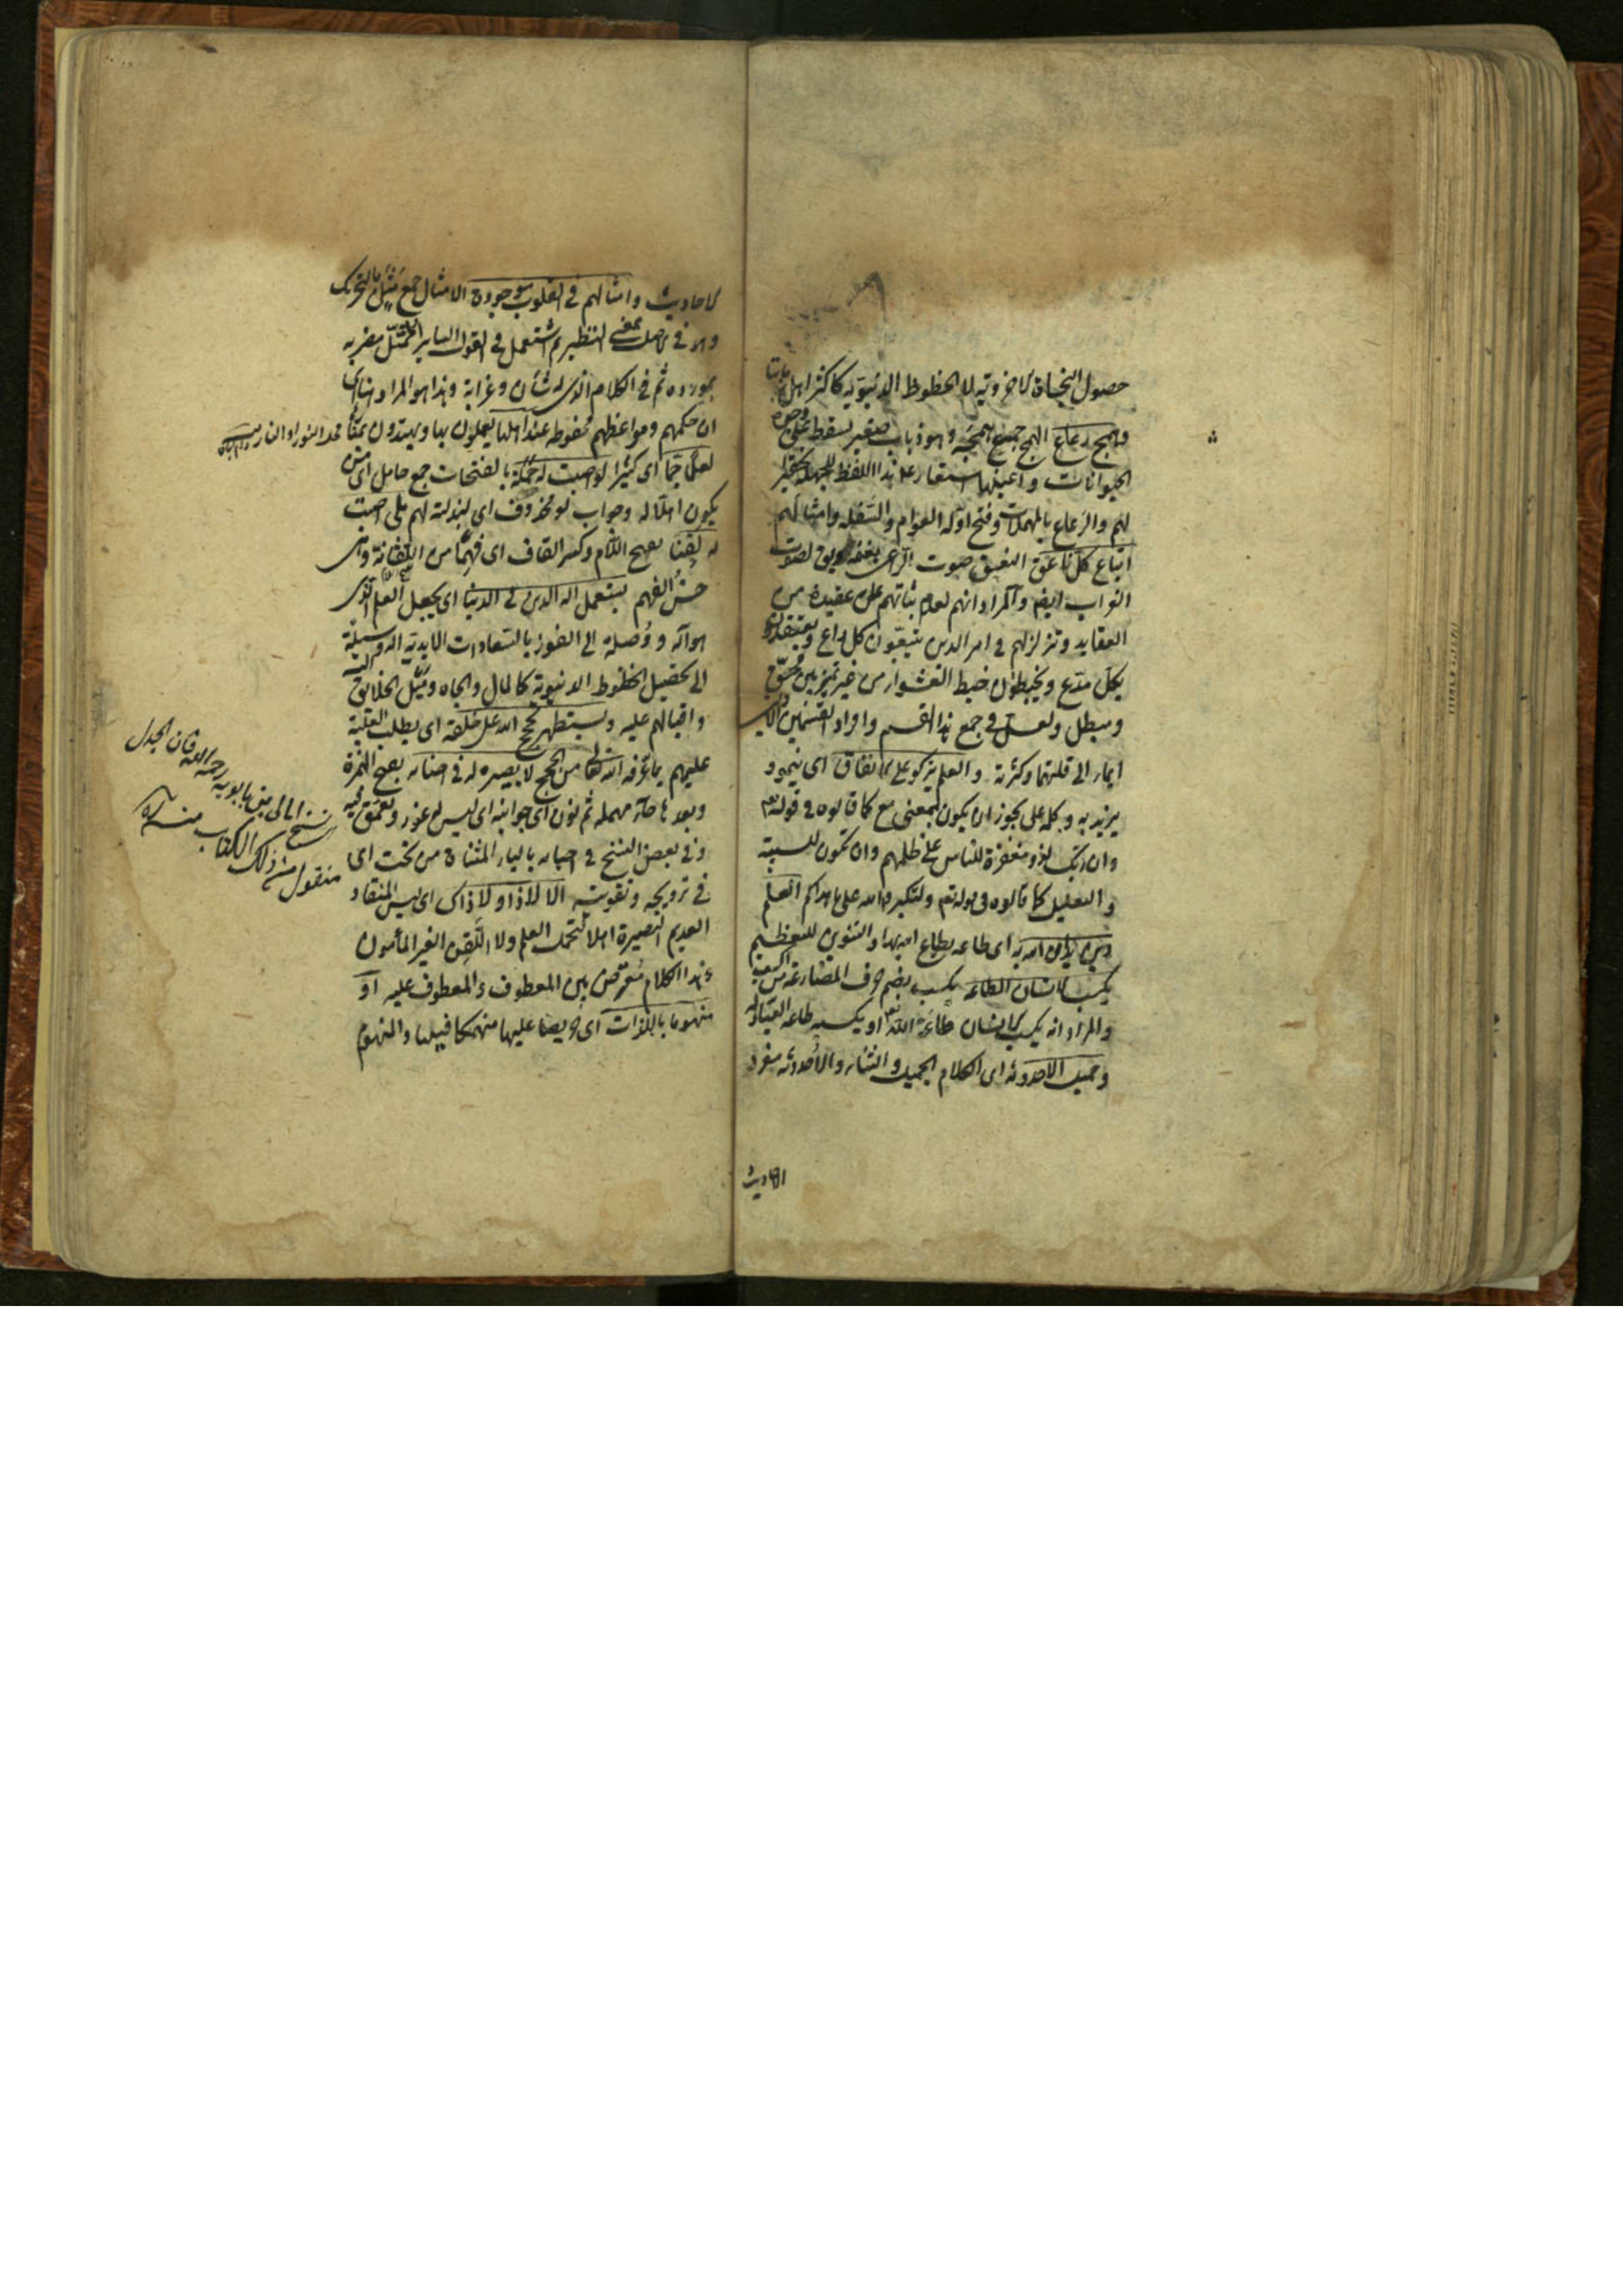 حصول النجاة الاخروية لا الحظوظ الدنيوية كاكثر اهل زماننا
وهمج رعاع الهمج جمع همجة وهو ذباب صغير يسقط على وجوه
الحيوانات واعينها استعار عم هذا اللفظ للجهلة تحقيرا
لهم والرعاع بالمهملات وفتح اوله العوام والسفلة وامثالهم
اتباع كل ناعق النعيق صوت الراعى بغنمه ويق لصوت
الغراب ايضا والمراد انهم لعدم ثباتهم على عقيدة من
العقايد وتزلزلهم في امر الدين يتبعون كل داع ويعتقدون
بكل مدع ويخبطون خبط العشواء من غير تميز بين محق
ومبطل ولعل في جمع هذا القسم وافراد القسمين الاولين
ايماء الى قلتهما وكثرته والعلم يزكو على الانفاق اى ينمو و
يزيد به وكلمة على يجوز ان يكون بمعنى مع كما قالوه في قوله تعم
وان ربك لذو مغفرة للناس على ظلمهم وان تكون للسببية
والتعليل كما قالوه في قوله تعم ولتكبروا الله على ما هداكم العلم
دين يدان الله به اى طاعة يطاع الله بها والتنوين للتعظيم
يكسب الانسان الطاعة يكسب بضم حرف المضارعة من اكسب
والمراد انه يكسب الانسان طاعة الله تعم او يكسبه طاعة العباد له
وجميل الاحدوثة اى الكلام الجميل والثناء والاحدوثة مفرد
الاحاديث
الاحاديث وامثالهم في القلوب موجودة الامثال جمع مثل بالتحريك
وهو في الاصل بمعنى النظير ثم استعمل في القول الساير الممثل مضربه
بمورده ثم في الكلام الذى له شأن وغرابة وهذا هو المراد هنا اى
ان حكمهم ومواعظهم محفوظة عند اهلها يعملون بها ويهتدون بمنارها
لعلما جما اى كثيرا لو اصبت له حملة بالفتحات جمع حامل اى من
يكون اهلا له وجواب لو محذوف اى لبذلته لهم بلى اصبت
له لقنا بفتح اللام وكسر القاف اى فهما من اللقانة وهى
حسن الفهم يستعمل آلة الدين في الدنيا اى يجعل العلم الذى
هو آلة ووصلة الى الفوز بالسعادات الابدية آلة ووسيلة
الى تحصيل الحظوظ الدنيوية كالمال والجاه وميل الخلايق
واقبالهم عليه ويستظهر بحجج الله على خلقه اى يطلب الغلبة
عليهم بما عرفه الله تعالى من الحجج لا بصيرة له في احنائه بفتح الهمزة
وبعدها حاء مهملة ثم نون اى جوانبه اى ليس له غور وتعمق فيه
وفي بعض النسخ في احيائه بالياء المثناة من تحت اى
في ترويجه وتقويته الا لا ذا ولا ذاك اى ليس المنقاد
العديم البصيرة اهلا لتحمل العلم ولا اللقن الغير المأمون
وهذا الكلام معترض بين المعطوف والمعطوف عليه او
منهوما باللذات اى حريصا عليها منهمكا فيها والمنهوم